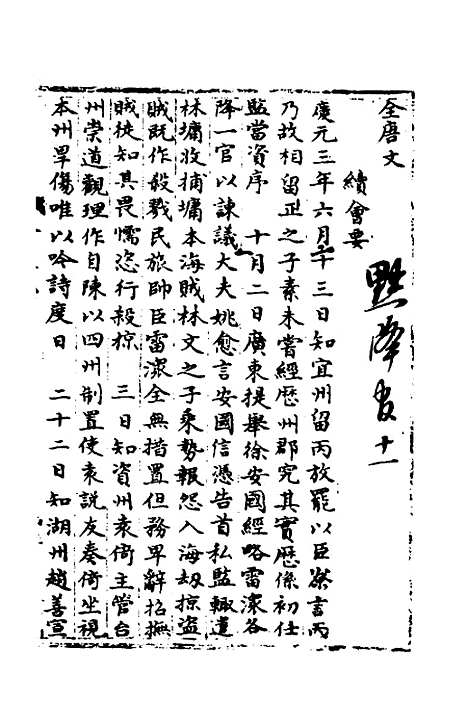 全唐文
續會要
黜降官十一
慶元三年六月十三日知宜州留丙放罷以臣寮言丙
乃故相留正之子素未嘗經歷州郡究其實歷係初任
監當資序　十月二日廣東提舉徐安國經略雷澯各
降一官以諫議大夫姚愈言安國信憑告首私監輙遣
林墉收捕墉本海賊林文之子乘勢報怨入海刼掠盜
賊既作殺戮民旅帥臣雷澯全無措置但務卑辭招撫
賊徒知其畏懦恣行殺掠　三日知資州袁衜主管台
州崇道觀理作自陳以四州制置使袁説友奏衜坐視
本州旱傷唯以吟詩度日　二十二日知湖州趙善宣